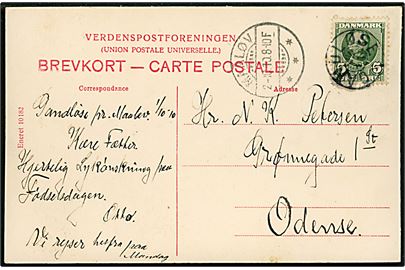 VERDENSPOSTFORENINGEN
(UNION POSTALE UNIVERSELLE.)
BREVKORT — CARTE POSTALE
Correspondance
Adresse
DANMARK
5
5
Eneret 10182
Ganløse pr. Maaløv 1/10-10
Kære Fætter
Hjertelig Lykønskning paa
Fødselsdagen.
Otto.
Vi rejser herfra paa
Mandag
Hr. N. K. Petersen
Grønnegade 1 St
Odense.